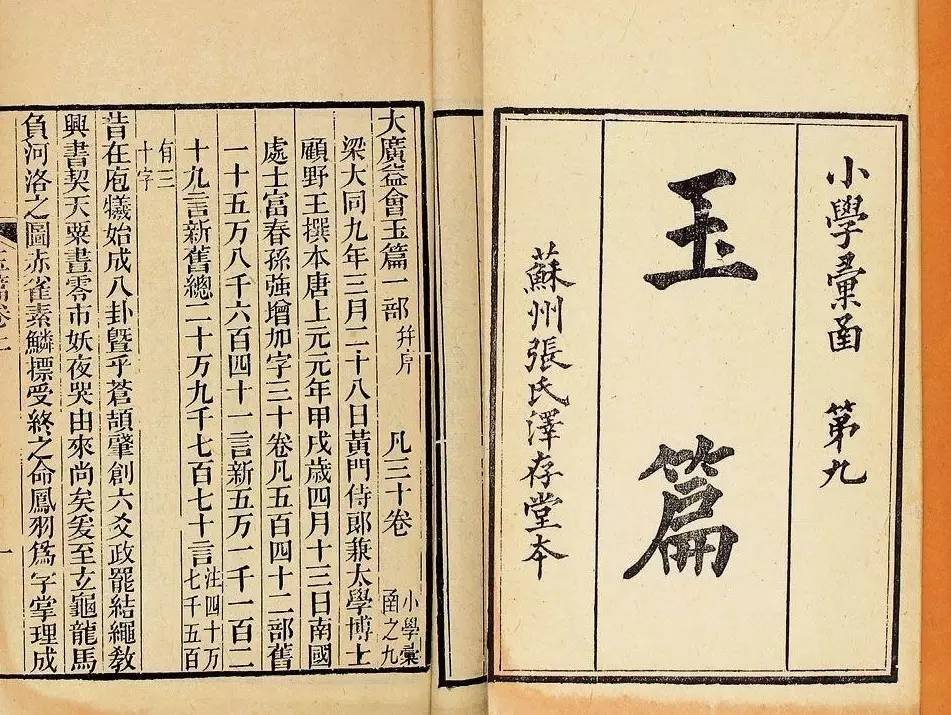 小學彙函 第九
玉篇
蘇州張氏澤存堂本
大廣益會玉篇一部 并序 凡三十卷 小學彙函之九
梁大同九年三月二十八日黃門侍郎兼太學博士
顧野王撰本唐上元元年甲戌歲四月十三日南國
處士富春孫强增加字三十卷凡五百四十二部舊
一十五万八千六百四十一言新五万一千一百二
十九言新舊總二十万九千七百七十言 注四十万七千五百
有三十字
昔在庖犧始成八卦暨乎蒼頡肇創六爻政罷結繩教
興書契天粟晝零市妖夜哭由來尚矣爰至玄龜龍馬
負河洛之圖赤雀素鱗標受終之命鳳羽爲字掌理成
玉篇卷上
一